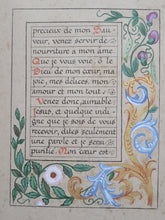 precieux de mon Sau-
veur, venez servir de
nourriture à mon âme.
Que je vous voie, ô le
Dieu de mon cœur, ma
joie, mes délices, mon
amour et mon tout
Venez donc, aimable
Jésus, et quelque indi-
gne que je sois de vous
recevoir, dites seulement
une parole et je serai
purifié. Mon cœur est